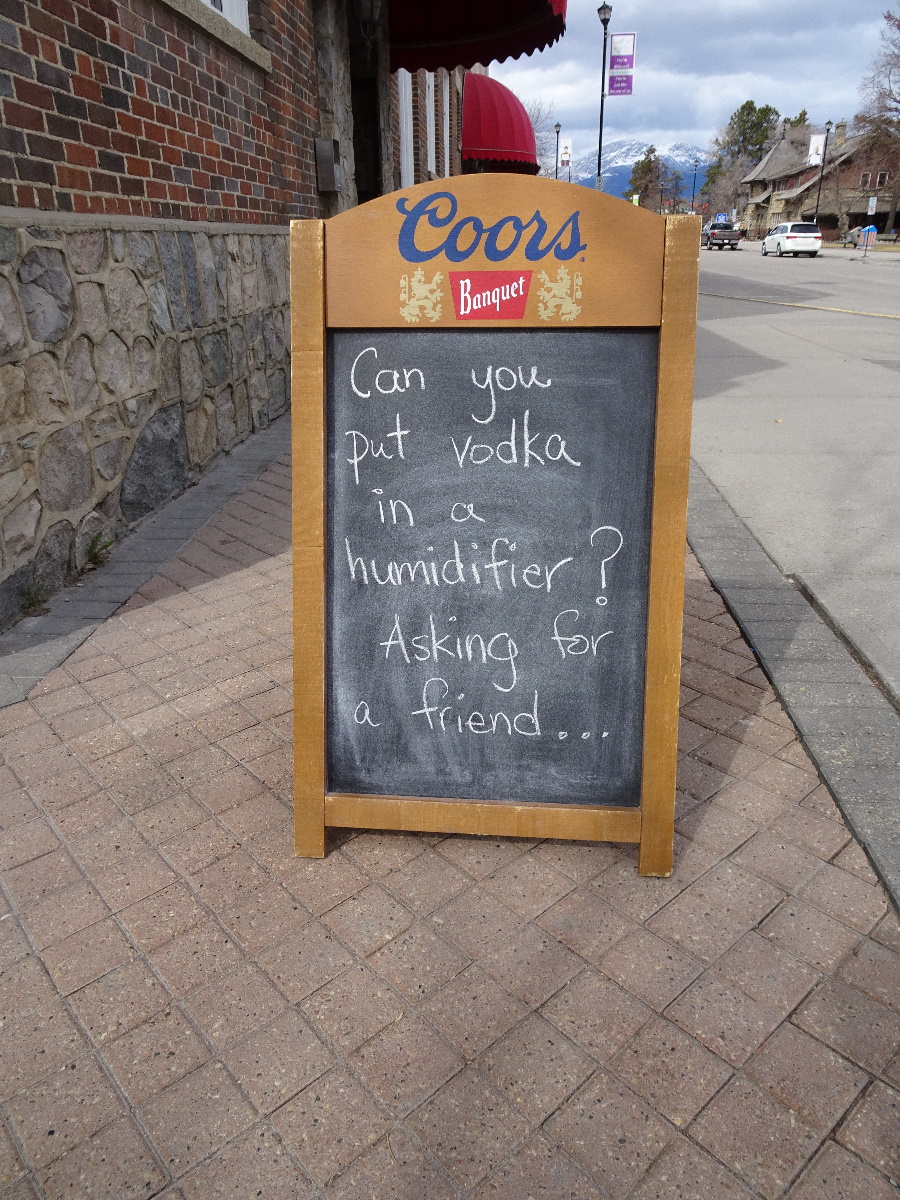 Coors
Banquet
Can you
put vodka
in a
humidifier?
Asking for
a friend...